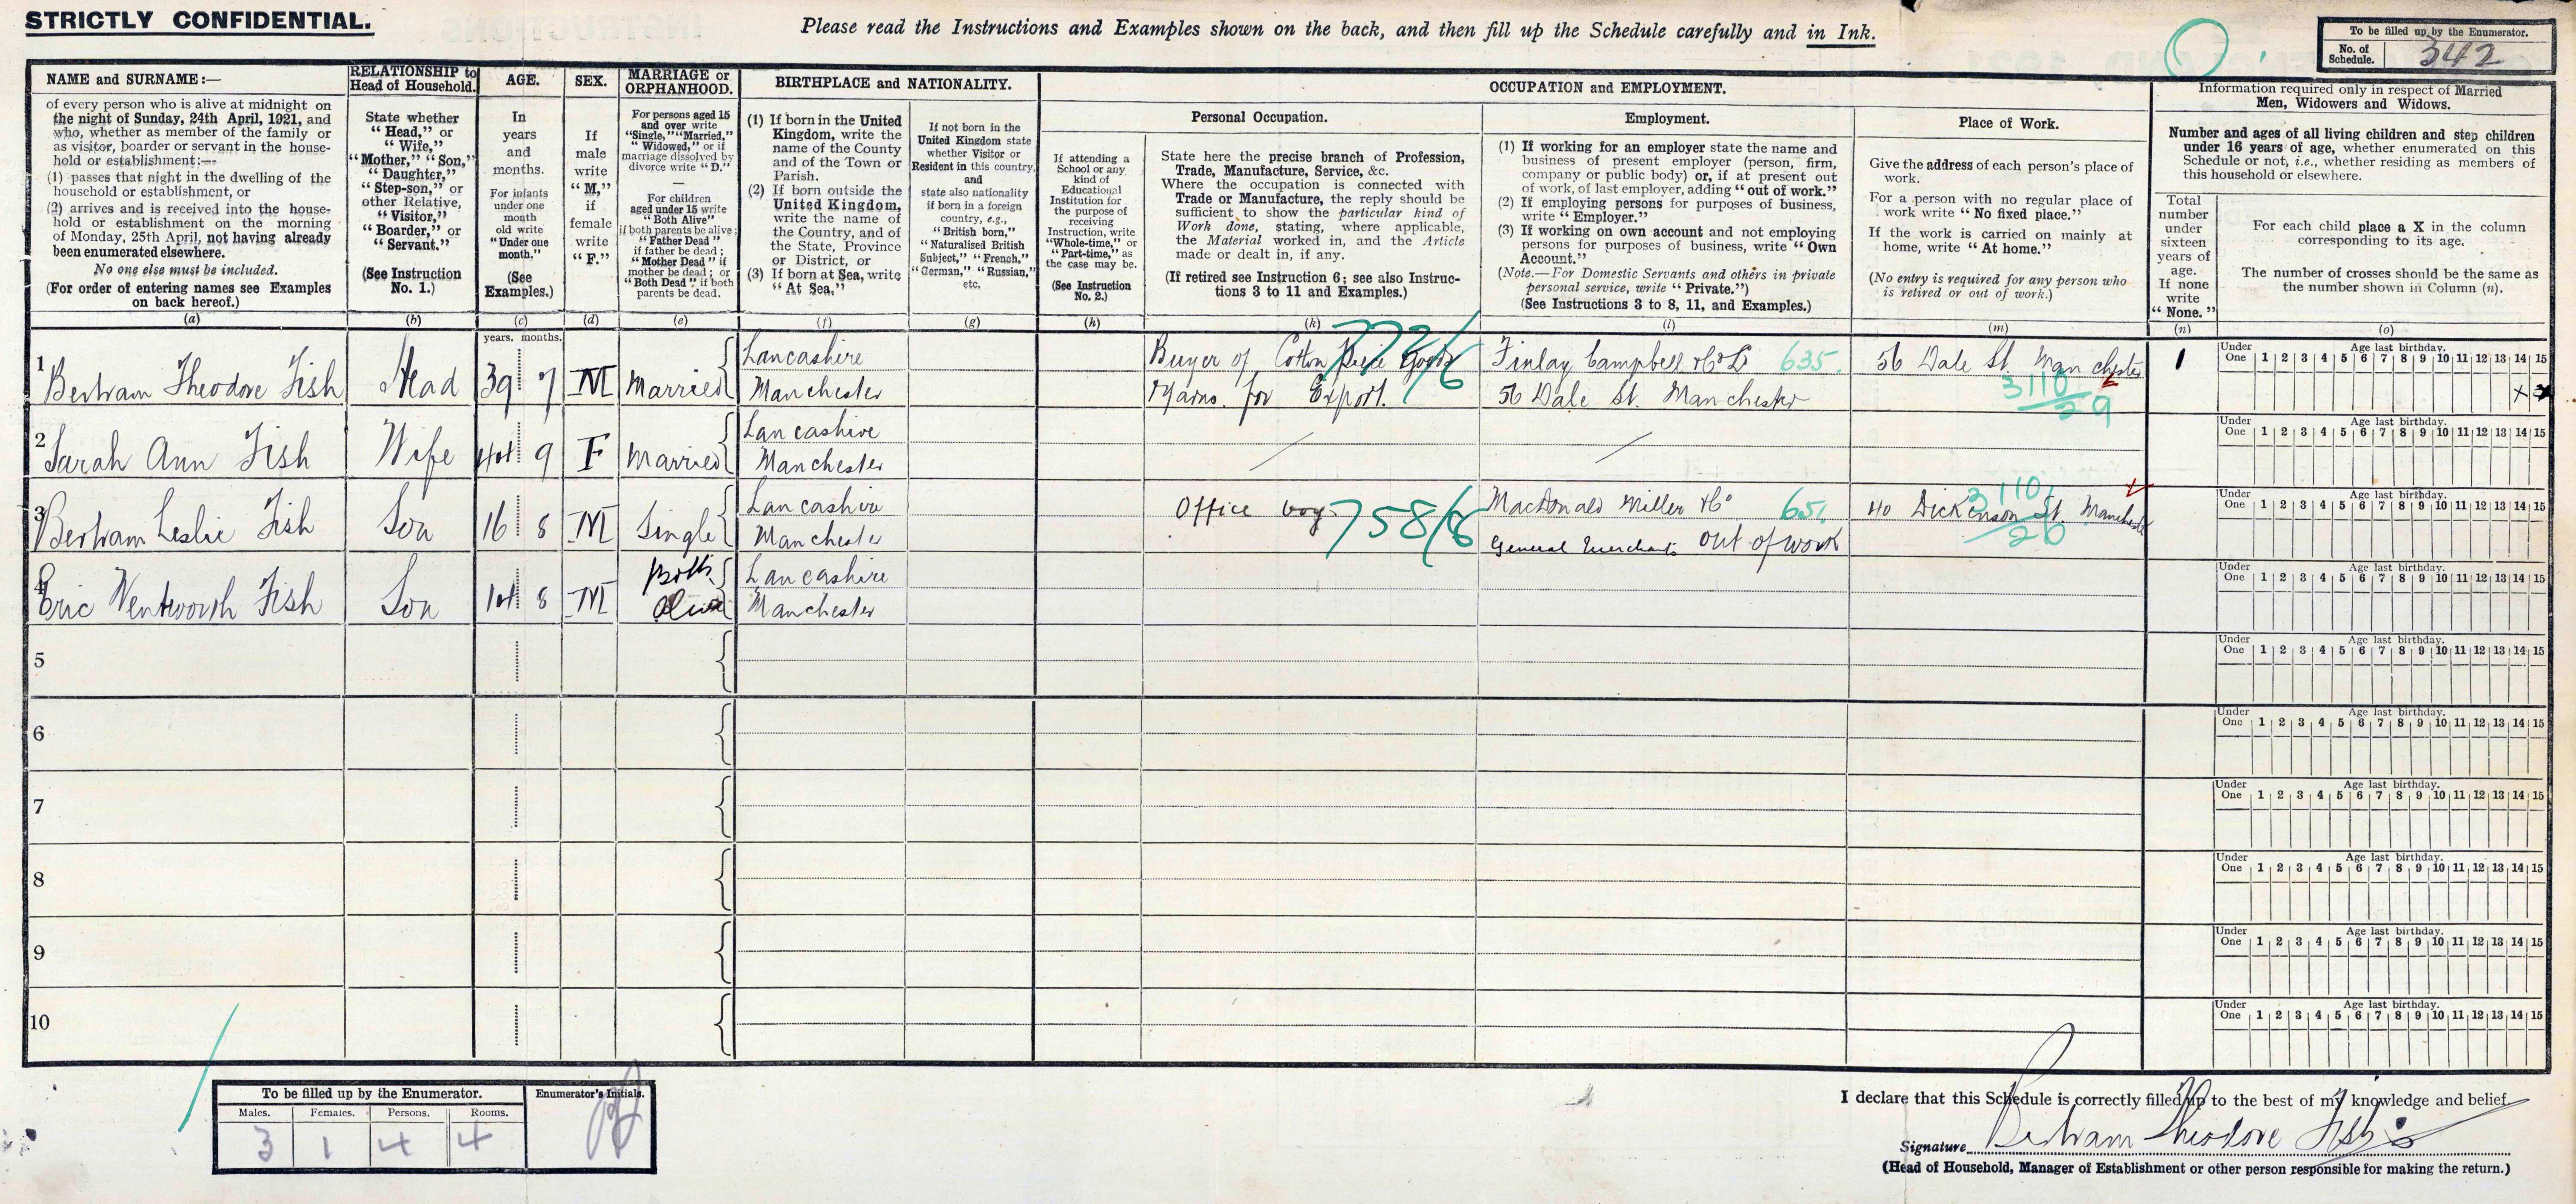 STRICTLY CONFIDENTIAL.
Please read the Instructions and Examples shown on the back, and then fill up the Schedule carefully and in Ink.
To be filled up by the Enumerator.
No. of Schedule. 342
NAME and SURNAME:—
of every person who is alive at midnight on
the night of Sunday, 24th April, 1921, and
who, whether as member of the family or
as visitor, boarder or servant in the house-
hold or establishment:—
(1) passes that night in the dwelling of the
household or establishment, or
(2) arrives and is received into the house-
hold or establishment on the morning
of Monday, 25th April, not having already
been enumerated elsewhere.
No one else must be included.
(For order of entering names see Examples
on back hereof.)
(a)
RELATIONSHIP to
Head of Household.
State whether
"Head," or
"Wife,"
"Mother," "Son,"
"Daughter,"
"Step-son," or
other Relative,
"Visitor,"
"Boarder," or
"Servant."
(See Instruction
No. 1.)
(b)
AGE.
In
years
and
months.
For infants
under one
month
old write
"Under one
month."
(See
Examples.)
(c)
SEX.
If
male
write
"M,"
if
female
write
"F."
(d)
MARRIAGE or
ORPHANHOOD.
For persons aged 15
and over write
"Single," "Married,"
"Widowed," or if
marriage dissolved by
divorce write "D."
—
For children
aged under 15 write
"Both Alive"
if both parents be alive;
"Father Dead"
if father be dead;
"Mother Dead" if
mother be dead; or
"Both Dead" if both
parents be dead.
(e)
BIRTHPLACE and NATIONALITY.
(1) If born in the United
Kingdom, write the
name of the County
and of the Town or
Parish.
(2) If born outside the
United Kingdom,
write the name of
the Country, and of
the State, Province
or District, or
(3) If born at Sea, write
"At Sea."
(f)
If not born in the
United Kingdom state
whether Visitor or
Resident in this country,
and
state also nationality
if born in a foreign
country, e.g.,
"British born,"
"Naturalised British
Subject," "French,"
"German," "Russian,"
etc.
(g)
OCCUPATION and EMPLOYMENT.
If attending a
School or any
kind of
Educational
Institution for
the purpose of
receiving
Instruction, write
"Whole-time," or
"Part-time," as
the case may be.
(See Instruction
No. 2.)
(h)
Personal Occupation.
State here the precise branch of Profession,
Trade, Manufacture, Service, &c.
Where the occupation is connected with
Trade or Manufacture, the reply should be
sufficient to show the particular kind of
Work done, stating, where applicable,
the Material worked in, and the Article
made or dealt in, if any.
(If retired see Instruction 6; see also Instruc-
tions 3 to 11 and Examples.)
(k)
Employment.
(1) If working for an employer state the name and
business of present employer (person, firm,
company or public body) or, if at present out
of work, of last employer, adding "out of work."
(2) If employing persons for purposes of business,
write "Employer."
(3) If working on own account and not employing
persons for purposes of business, write "Own
Account."
(Note.—For Domestic Servants and others in private
personal service, write "Private.")
(See Instructions 3 to 8, 11, and Examples.)
(l)
Place of Work.
Give the address of each person's place of
work.
For a person with no regular place of
work write "No fixed place."
If the work is carried on mainly at
home, write "At home."
(No entry is required for any person who
is retired or out of work.)
(m)
Information required only in respect of Married
Men, Widowers and Widows.
Number and ages of all living children and step children
under 16 years of age, whether enumerated on this
Schedule or not, i.e., whether residing as members of
this household or elsewhere.
Total
number
under
sixteen
years of
age.
If none
write
"None."
(n)
For each child place a X in the column
corresponding to its age.
The number of crosses should be the same as
the number shown in Column (n).
(o)
years. months.
1 Bertram Theodore Fish Head 39 7 M Married Lancashire Manchester
Buyer of Cotton Piece Goods
Yarns. for Export.
772/6
Finlay Campbell & Co Ld 635.
56 Dale St. Manchester
56 Dale St. Manchester
3110/29
1
Under One Age last birthday. 1 2 3 4 5 6 7 8 9 10 11 12 13 14 15
X
2 Sarah Ann Fish Wife 44 9 F Married Lancashire Manchester
Under One Age last birthday. 1 2 3 4 5 6 7 8 9 10 11 12 13 14 15
3 Bertram Leslie Fish Son 16 8 M Single Lancashire Manchester
Office boy 758/8
MacDonald Miller & Co 651.
General Merchants out of work
40 Dickenson St. Manchester
3110/20
Under One Age last birthday. 1 2 3 4 5 6 7 8 9 10 11 12 13 14 15
4 Eric Wentworth Fish Son 14 8 M Both Alive Lancashire Manchester
Under One Age last birthday. 1 2 3 4 5 6 7 8 9 10 11 12 13 14 15
5
Under One Age last birthday. 1 2 3 4 5 6 7 8 9 10 11 12 13 14 15
6
Under One Age last birthday. 1 2 3 4 5 6 7 8 9 10 11 12 13 14 15
7
Under One Age last birthday. 1 2 3 4 5 6 7 8 9 10 11 12 13 14 15
8
Under One Age last birthday. 1 2 3 4 5 6 7 8 9 10 11 12 13 14 15
9
Under One Age last birthday. 1 2 3 4 5 6 7 8 9 10 11 12 13 14 15
10
Under One Age last birthday. 1 2 3 4 5 6 7 8 9 10 11 12 13 14 15
To be filled up by the Enumerator.
Males. Females. Persons. Rooms.
3 1 4 4
Enumerator's Initials.
I declare that this Schedule is correctly filled up to the best of my knowledge and belief.
Signature Bertram Theodore Fish
(Head of Household, Manager of Establishment or other person responsible for making the return.)